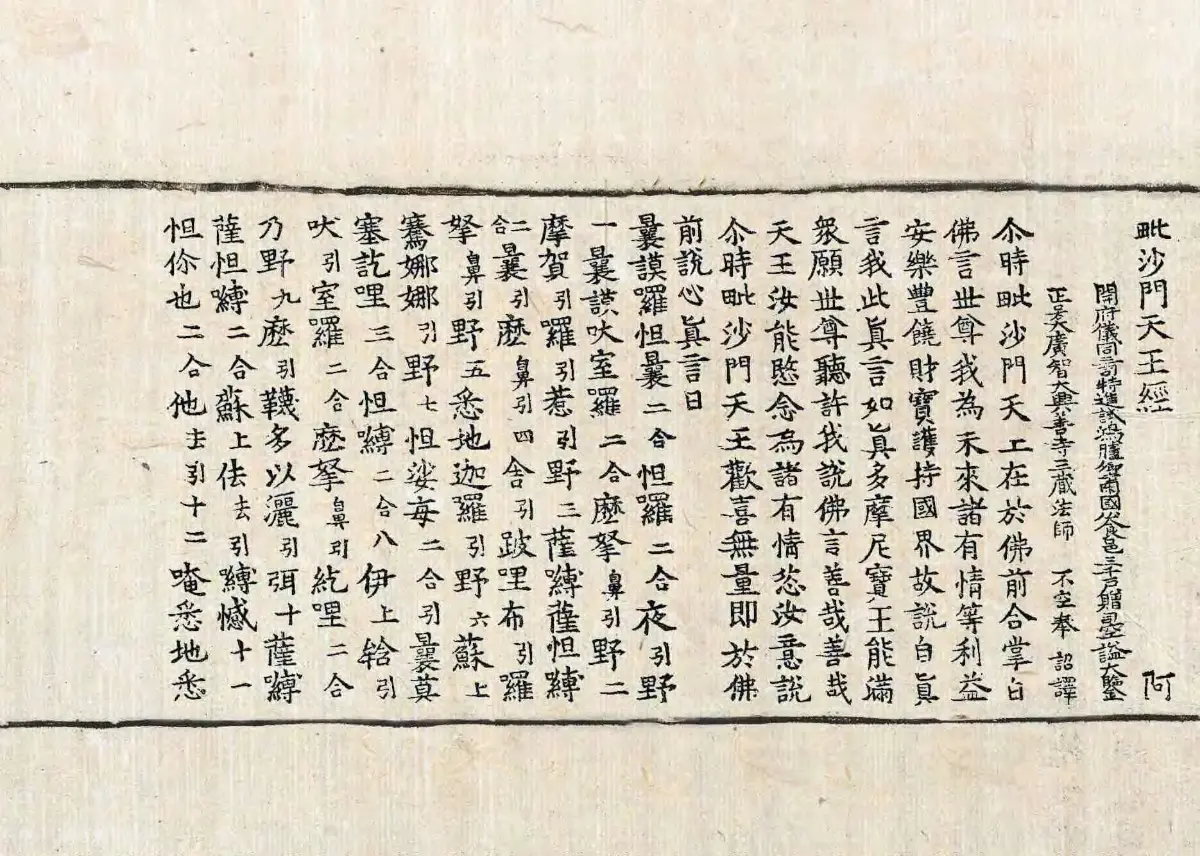 毗沙門天王經 阿
開府儀同三司特進試鴻臚卿肅國公食邑三千戶贈司空謚大鑒
正号大廣智大興善寺三藏法師 不空奉 詔譯
尒時毗沙門天王在於佛前合掌白
佛言世尊我為未來諸有情等利益
安樂豐饒財寶護持國界故說自真
言我此真言如真多摩尼寶王能滿
眾願世尊聽許我說佛言善哉善哉
天王汝能愍念為諸有情恣汝意說
尒時毗沙門天王歡喜無量即於佛
前說心真言曰
曩謨羅怛曩二合怛羅二合夜引野
一曩謨吠室羅二合麼拏鼻引野二
摩賀引羅引惹引野三薩縛薩怛縛
二合曩引麼鼻引四舍引跛哩布引羅
拏鼻引野五悉地迦羅引野六蘇上
騫娜娜引野七怛娑每二合引曩莫
塞訖哩三合怛縛二合八伊上𤚥引
吠引室羅二合麼拏鼻引紇哩二合
乃野九麼引韈多以灑引弭十薩縛
薩怛縛二合蘇上佉去引縛憾十一
怛你也二合他去引十二唵悉地悉